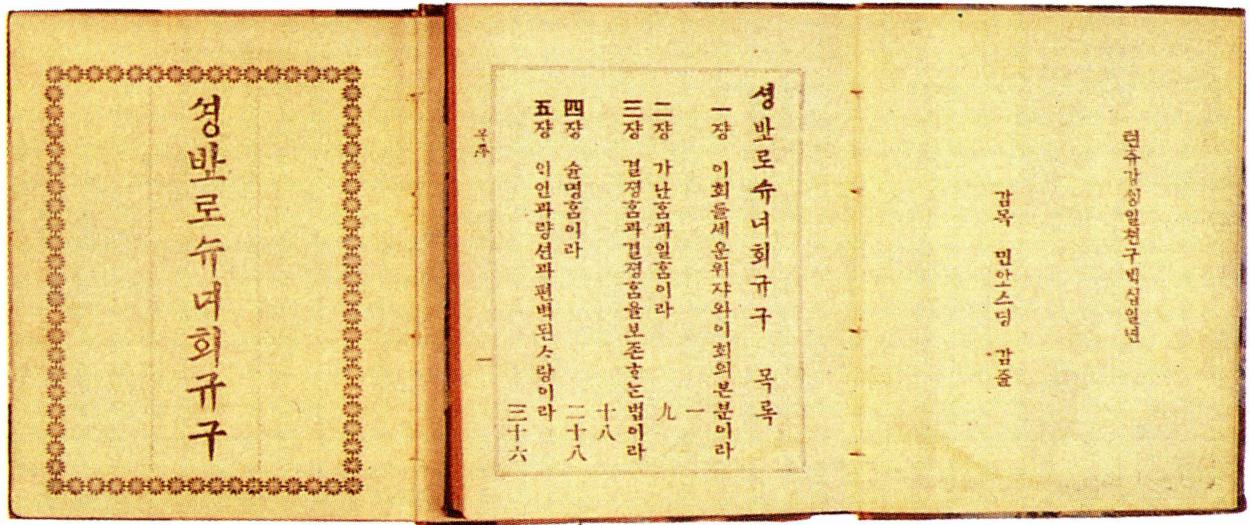 셩밧로슈녀회규구
텬쥬강ᄉᆡᆼ일쳔구ᄇᆡᆨ십일년
감목 민아스딩 감쥰
셩밧로슈녀회규구 목록
一쟝 이회를세운위쟈와이회의본분이라 一
二쟝 가난홈과일홈이라 九
三쟝 결졍홈과결졍홈을보존ᄒᆞ는법이라 十八
四쟝 슌명홈이라 二十八
五쟝 의인과량션과편벽된ᄉᆞ랑이라 三十六
一